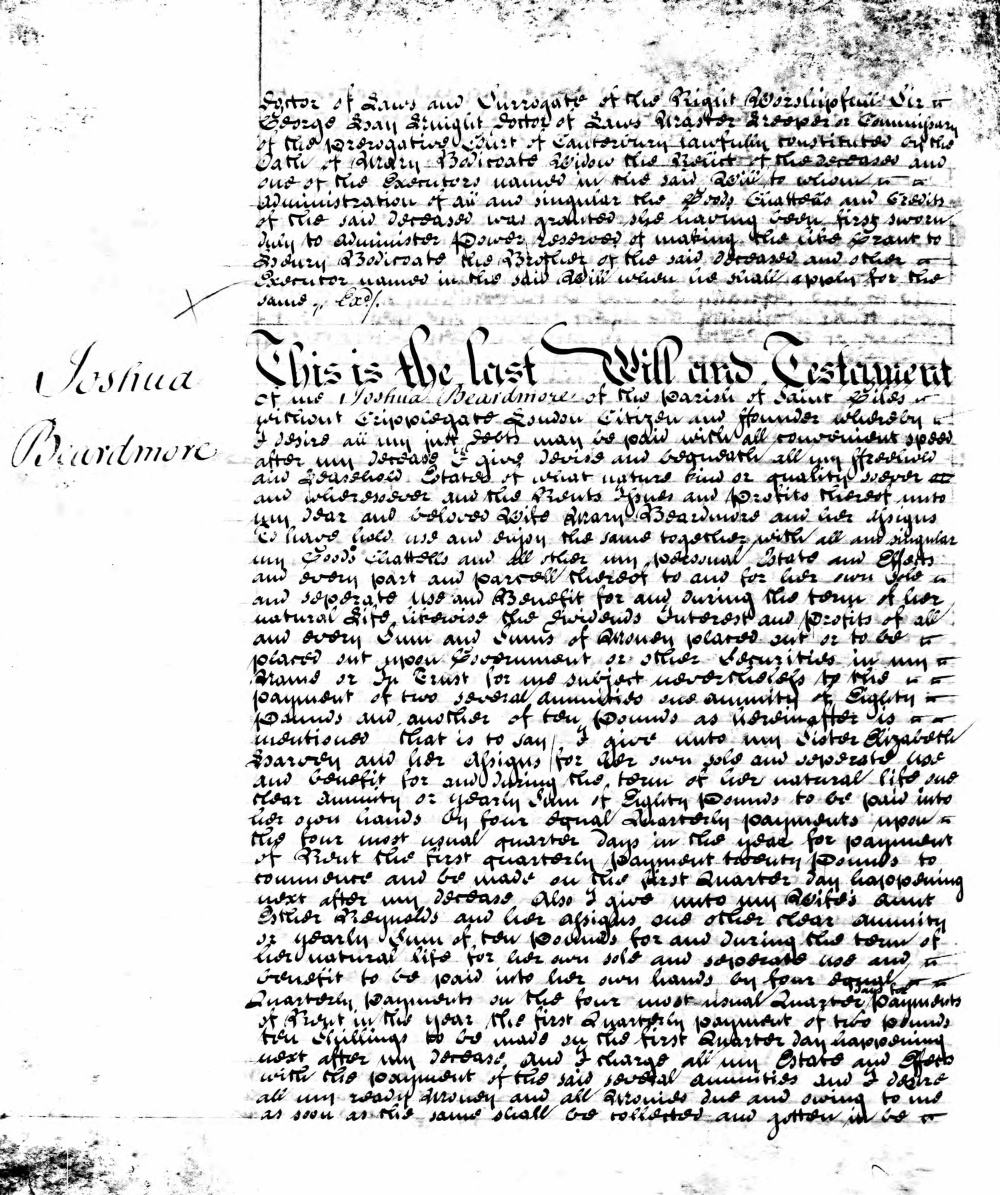 Doctor of Laws and Surrogate of the Right Worshipfull Sir
George Hay Knight Doctor of Laws Master Keeper or Commissary
of the Prerogative Court of Canterbury lawfully constituted by the
Oath of Mary Bodicoate Widow the Relict of the deceased and
one of the Executors named in the said Will to whom
Administration of all and singular the Goods Chattells and Credits
of the said deceased was granted she having been first sworn
duly to administer Power reserved of making the like Grant to
Henry Bodicoate the Brother of the said deceased and other
Executor named in the said Will when he shall apply for the
same Exd/.
Joshua
Beardmore
This is the last Will and Testament
of me Joshua Beardmore of the Parish of Saint Giles
without Cripplegate London Citizen and Founder whereby
I desire all my just Debts may be paid with all convenient speed
after my decease I give devise and bequeath all my Freehold
and Leasehold Estates of what nature kind or quality soever
and wheresoever and the Rents Issues and Profits thereof unto
my dear and beloved Wife Mary Beardmore and her Assigns
To have hold use and enjoy the same together with all and singular
my Goods Chattells and all other my personal Estate and Effects
and every part and parcell thereof to and for her own sole
and seperate use and Benefit for and during the term of her
natural Life likewise the Dividends Interest and Profits of all
and every Sum and Sums of Money placed out or to be
placed out upon Government or other Securities in my
Name or In Trust for me subject nevertheless to the
payment of two several annuities one annuity of Eighty
Pounds and another of ten Pounds as hereinafter is
mentioned that is to say/ I give unto my Sister Elizabeth
Harvey and her Assigns for her own sole and seperate use
and benefit for and during the term of her natural life one
clear Annuity or yearly Sum of Eighty Pounds to be paid into
her own hands by four equal Quarterly payments upon
the four most usual quarter days in the year for payment
of Rent the first quarterly payment twenty Pounds to
commence and be made on the first Quarter day happening
next after my decease Also I give unto my Wife's Aunt
Esther Reynolds and her assigns one other clear annuity
or yearly Sum of ten Pounds for and during the term of
her natural life for her own sole and seperate use and
benefit to be paid into her own hands by four equal
Quarterly Payments on the four most usual Quarter days for Payments
of Rent in the year the first Quarterly payment of two pounds
ten Shillings to be made on the first Quarter day happening
next after my decease, and I charge all my Estate and Effects
with the payment of the said several annuities and I desire
all my ready Money and all Monies due and owing to me
as soon as the same shall be collected and gotten in be